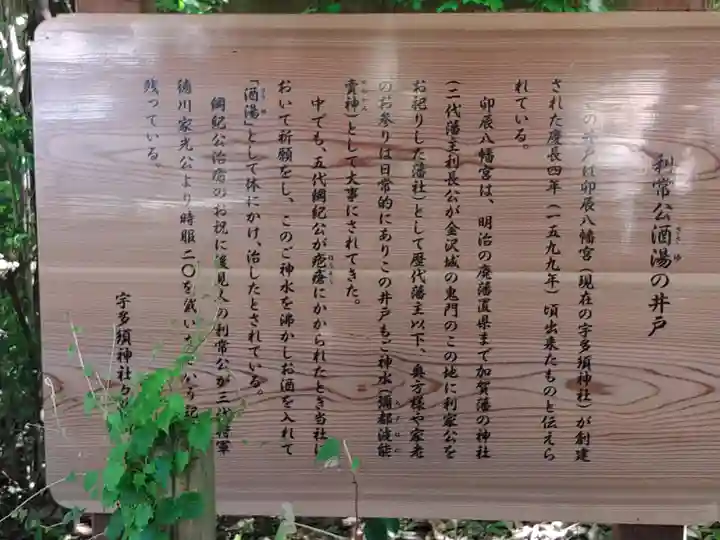 利常公酒湯の井戸
ささゆ
この井戸は卯辰八幡宮(現在の宇多須神社)が創建
された慶長四年(一五九九年)頃出来たものと伝えら
れている。
卯辰八幡宮は、明治の廃藩置県まで加賀藩の神社
(二代藩主利長公が金沢城の鬼門のこの地に利家公を
お祀りした藩社)として歴代藩主以下、奥方様や家老
のお参りは日常的にありこの井戸もご神水(彌都波能
賣神)として大事にされてきた。
中でも、五代綱紀公が疱瘡にかかられたとき当社に
おいて祈願をし、このご神水を沸かしお酒を入れて
「酒湯」として体にかけ、治したとされている。
綱紀公治癒のお祝に後見人の利常公が三代将軍
徳川家光公より時服二〇を戴い
残っている。
宇多須神社